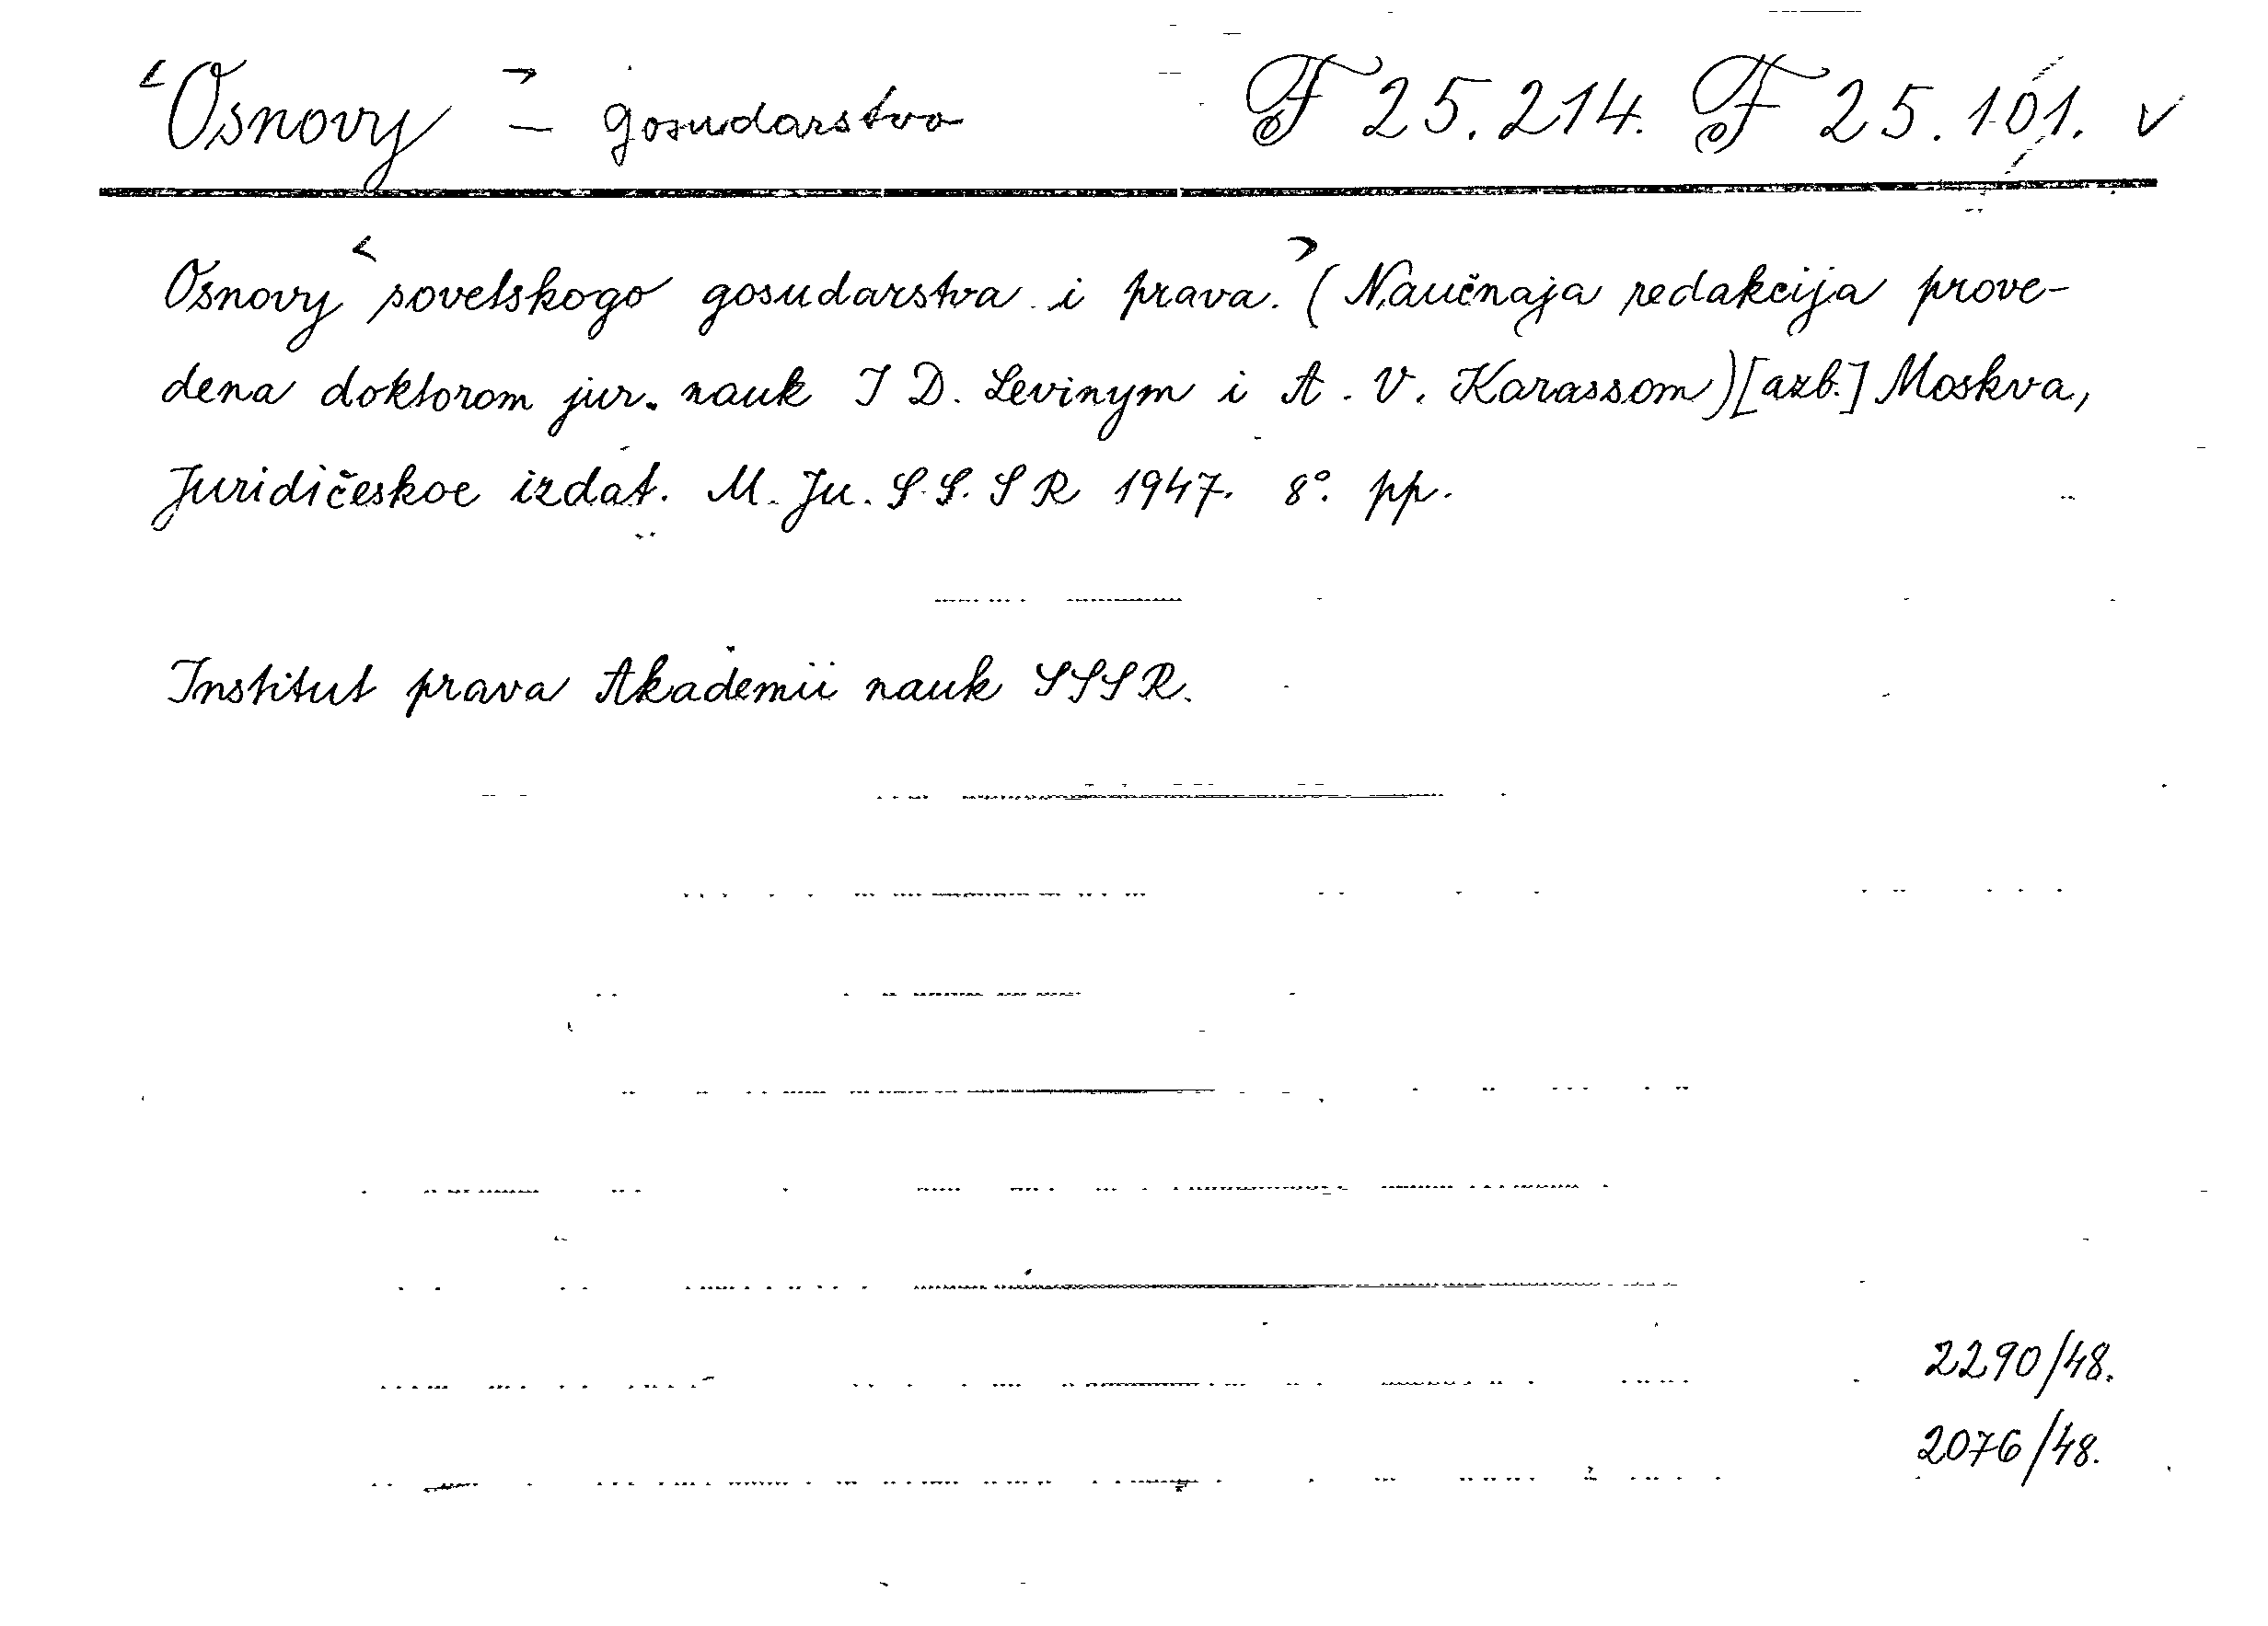 "Osnovy" – gosudarstvo F 25.214. F 25.101. v
Osnovy "sovetskogo gosudarstva i prava." (Naučnaja redakcija prove-
dena doktorom jur. nauk I D. Levinym i A. V. Karassom) [azb.] Moskva,
Juridičeskoe izdat. M. Ju. S.S.S R 1947. 8°. pp.
Institut prava Akademii nauk SSSR.
2290/48.
2076/48.